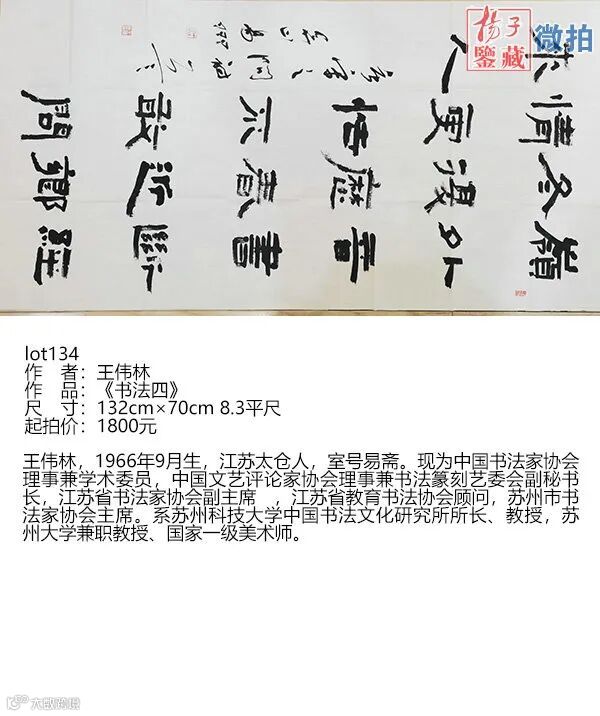 嶺外音書斷經
冬復歷春近鄉
情更怯不敢問
來人
揚子
鑒藏
微拍
lot134
作 者：王伟林
作 品：《书法四》
尺 寸：132cm×70cm 8.3平尺
起拍价：1800元
王伟林，1966年9月生，江苏太仓人，室号易斋。现为中国书法家协会
理事兼学术委员，中国文艺评论家协会理事兼书法篆刻艺委会副秘书
长，江苏省书法家协会副主席 ，江苏省教育书法协会顾问，苏州市书
法家协会主席。系苏州科技大学中国书法文化研究所所长、教授，苏
州大学兼职教授、国家一级美术师。
大歐跨境